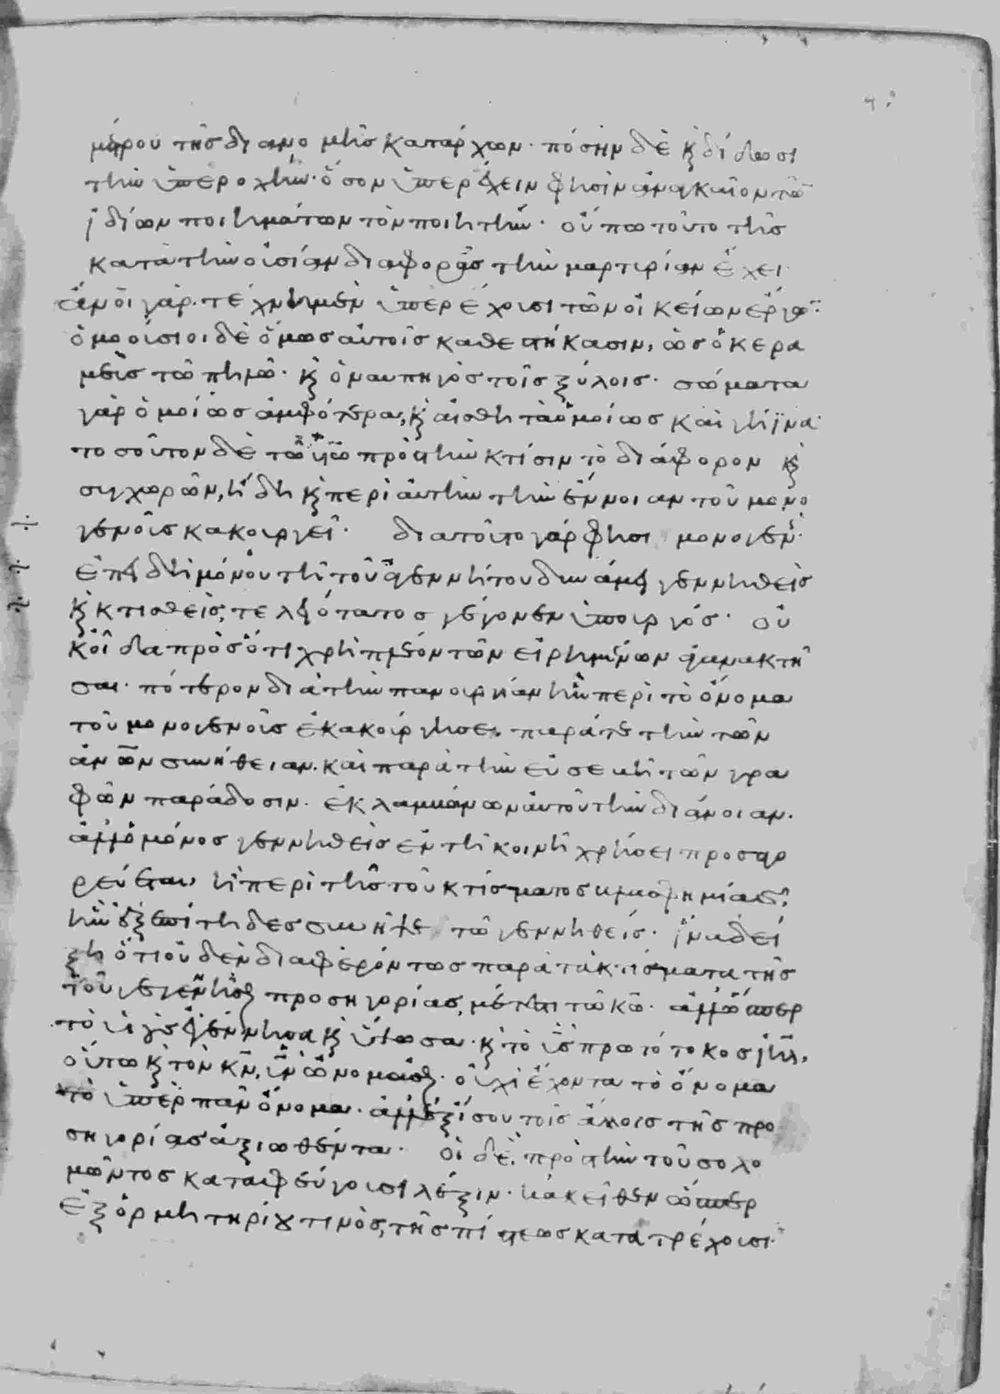 μέρου τῆς διανομῆς κατάρχων· πόσην δὲ κ δίδωσι
τὴν ὑπεροχήν· ὅσον ὑπερέχειν φησὶν ἀναγκαῖον τῶ
ἰδίων ποιημάτων τὸν ποιητήν· οὔπω τοῦτο τῆς
κατὰ τὴν οὐσίαν διαφορᾶς τὴν μαρτυρίαν ἔχει·
ἄνοι γάρ· τέχνη μὲν ὑπερέχουσι τῶν οἰκείων ἔργω·
ὁμοούσιοι δὲ ὅμως αὐτοῖς καθεστήκασιν, ὡς ὁ κερα
μεὺς τῶ πηλῶ· κ ὁ ναυπηγὸς τοῖς ξύλοις· σώματα
γὰρ ὁμοίως ἀμφότερα, κ αἰσθητὰ ὁμοίως καὶ γήϊνα·
τοσοῦτον δὲ τῶ υἱῶ πρὸς τὴν κτίσιν τὸ διάφορον κ
συγχωρῶν, ἤδη κ περὶ αὐτὴν τὴν ἔννοιαν τοῦ μονο
γενοῦς κακουργεῖ· διατοῦτο γάρ φησι μονογεν·
ἐπειδὴ μόνου τῆ τοῦ ἀγεννήτου δυνάμει γεννηθεὶς
κ κτισθείς, τελειότατος γέγονεν ὑπουργός· οὐ
κ οἶδα πρὸς ὅτι χρὴ πλέον τῶν εἰρημένων ἀγανακτῆ
σαι· πότερον διὰ τὴν πανουργίαν ἣν περὶ τὸ ὄνομα
τοῦ μονογενοῦς ἐκακούργησε, παρά τε τὴν τῶν
ἀνων συνήθειαν· καὶ παρὰ τὴν εὐσεβῆ τῶν γρα
φῶν παράδοσιν· ἐκλαμβάνων αὐτοῦ τὴν διάνοιαν·
ἀλλὸ μόνος γεννηθεὶς ἐν τῆ κοινῆ χρήσει προσαγο
ρεύεται, ἢ περὶ τῆς τοῦ κτίσματος βλασφημίας·
ἣν ἐξεπίτηδες συνῆψε τῶ γεννηθείς· ἵνα δεί
ξη ὅτι οὐδὲν διαφερόντως παρὰ τὰ κτίσματα τῆς
τοῦ γεγεννῆσθαι προσηγορίας, μέτεστι τῶ κω· ἀλλ' ὥσπερ
τὸ υἱοὺς ἐγέννησα κ ὕψωσα· κ τὸ υἱς πρωτότοκος ιηλ·
οὕτω κ τὸν κν, υν ὠνομάσθαι· οὐχὶ ἔχοντα τὸ ὄνομα
τὸ ὑπὲρ πᾶν ὄνομα· ἀλλ' ἐξίσου τοῖς ἄλλοις τῆς προ
σηγορίας ἀξιωθέντα· οἱ δὲ πρὸς τὴν τοῦ σολο
μῶντος καταφεύγουσι λέξιν· κἀκεῖθεν ὥσπερ
ἐξ ὁρμητηρίου τινὸς, τῆς πίστεως κατατρέχουσι·